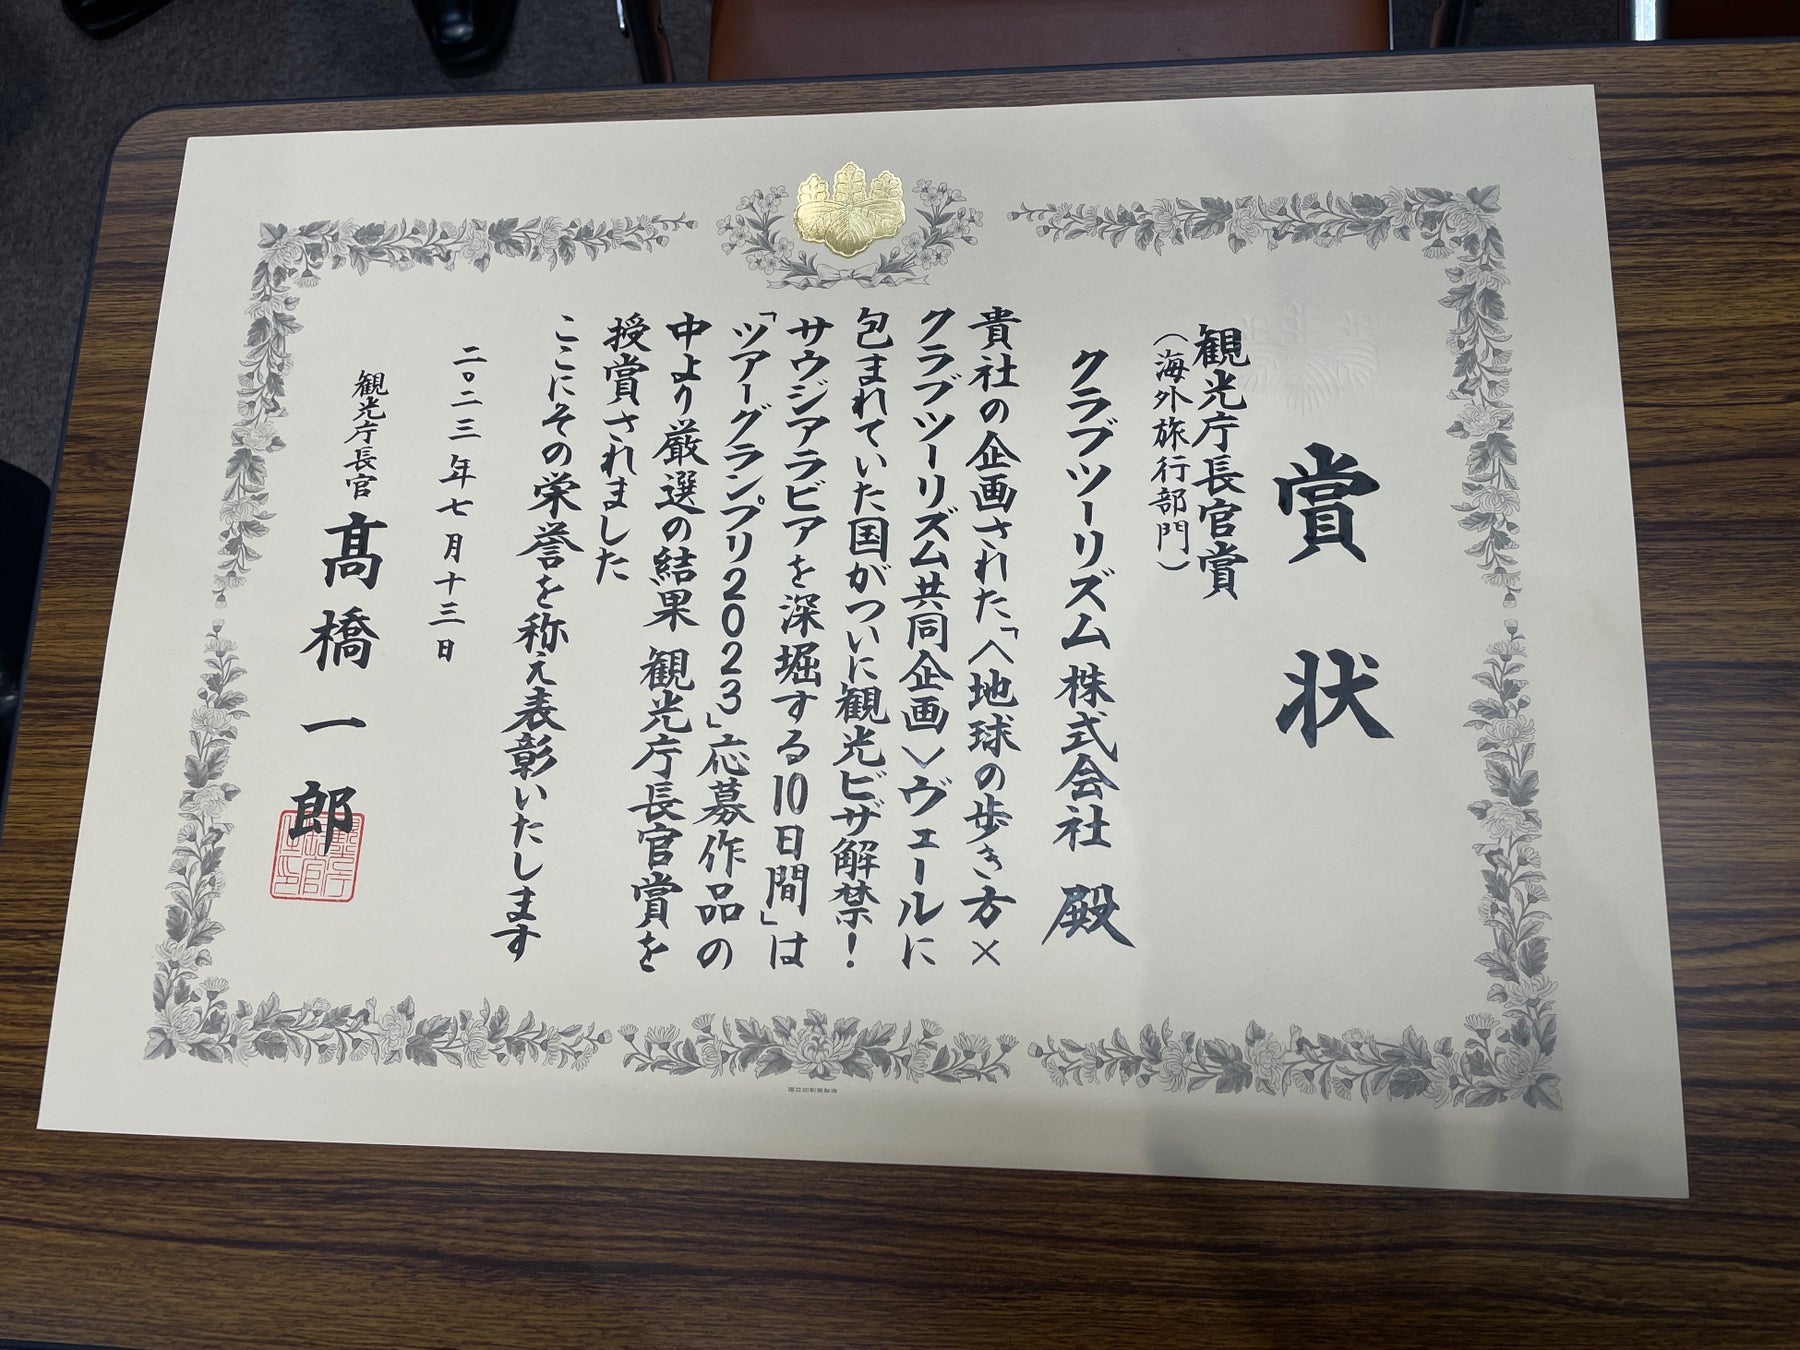 賞状
観光庁長官賞
(海外旅行部門)
クラブツーリズム株式会社 殿
貴社の企画された「<地球の歩き方×
クラブツーリズム共同企画>ヴェールに
包まれていた国がついに観光ビザ解禁!
サウジアラビアを深堀する10日間」は
「ツアーグランプリ2023」応募作品の
中より厳選の結果 観光庁長官賞を
授賞されました
ここにその栄誉を称え表彰いたします
二〇二三年七月十三日
観光庁長官 髙橋一郎
国立印刷局製造